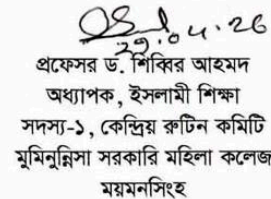 ২৯.০৪.২৬
প্রফেসর ড. শিব্বির আহমদ
অধ্যাপক, ইসলামী শিক্ষা
সদস্য-১, কেন্দ্রিয় রুটিন কমিটি
মুমিনুন্নিসা সরকারি মহিলা কলেজ
ময়মনসিংহ